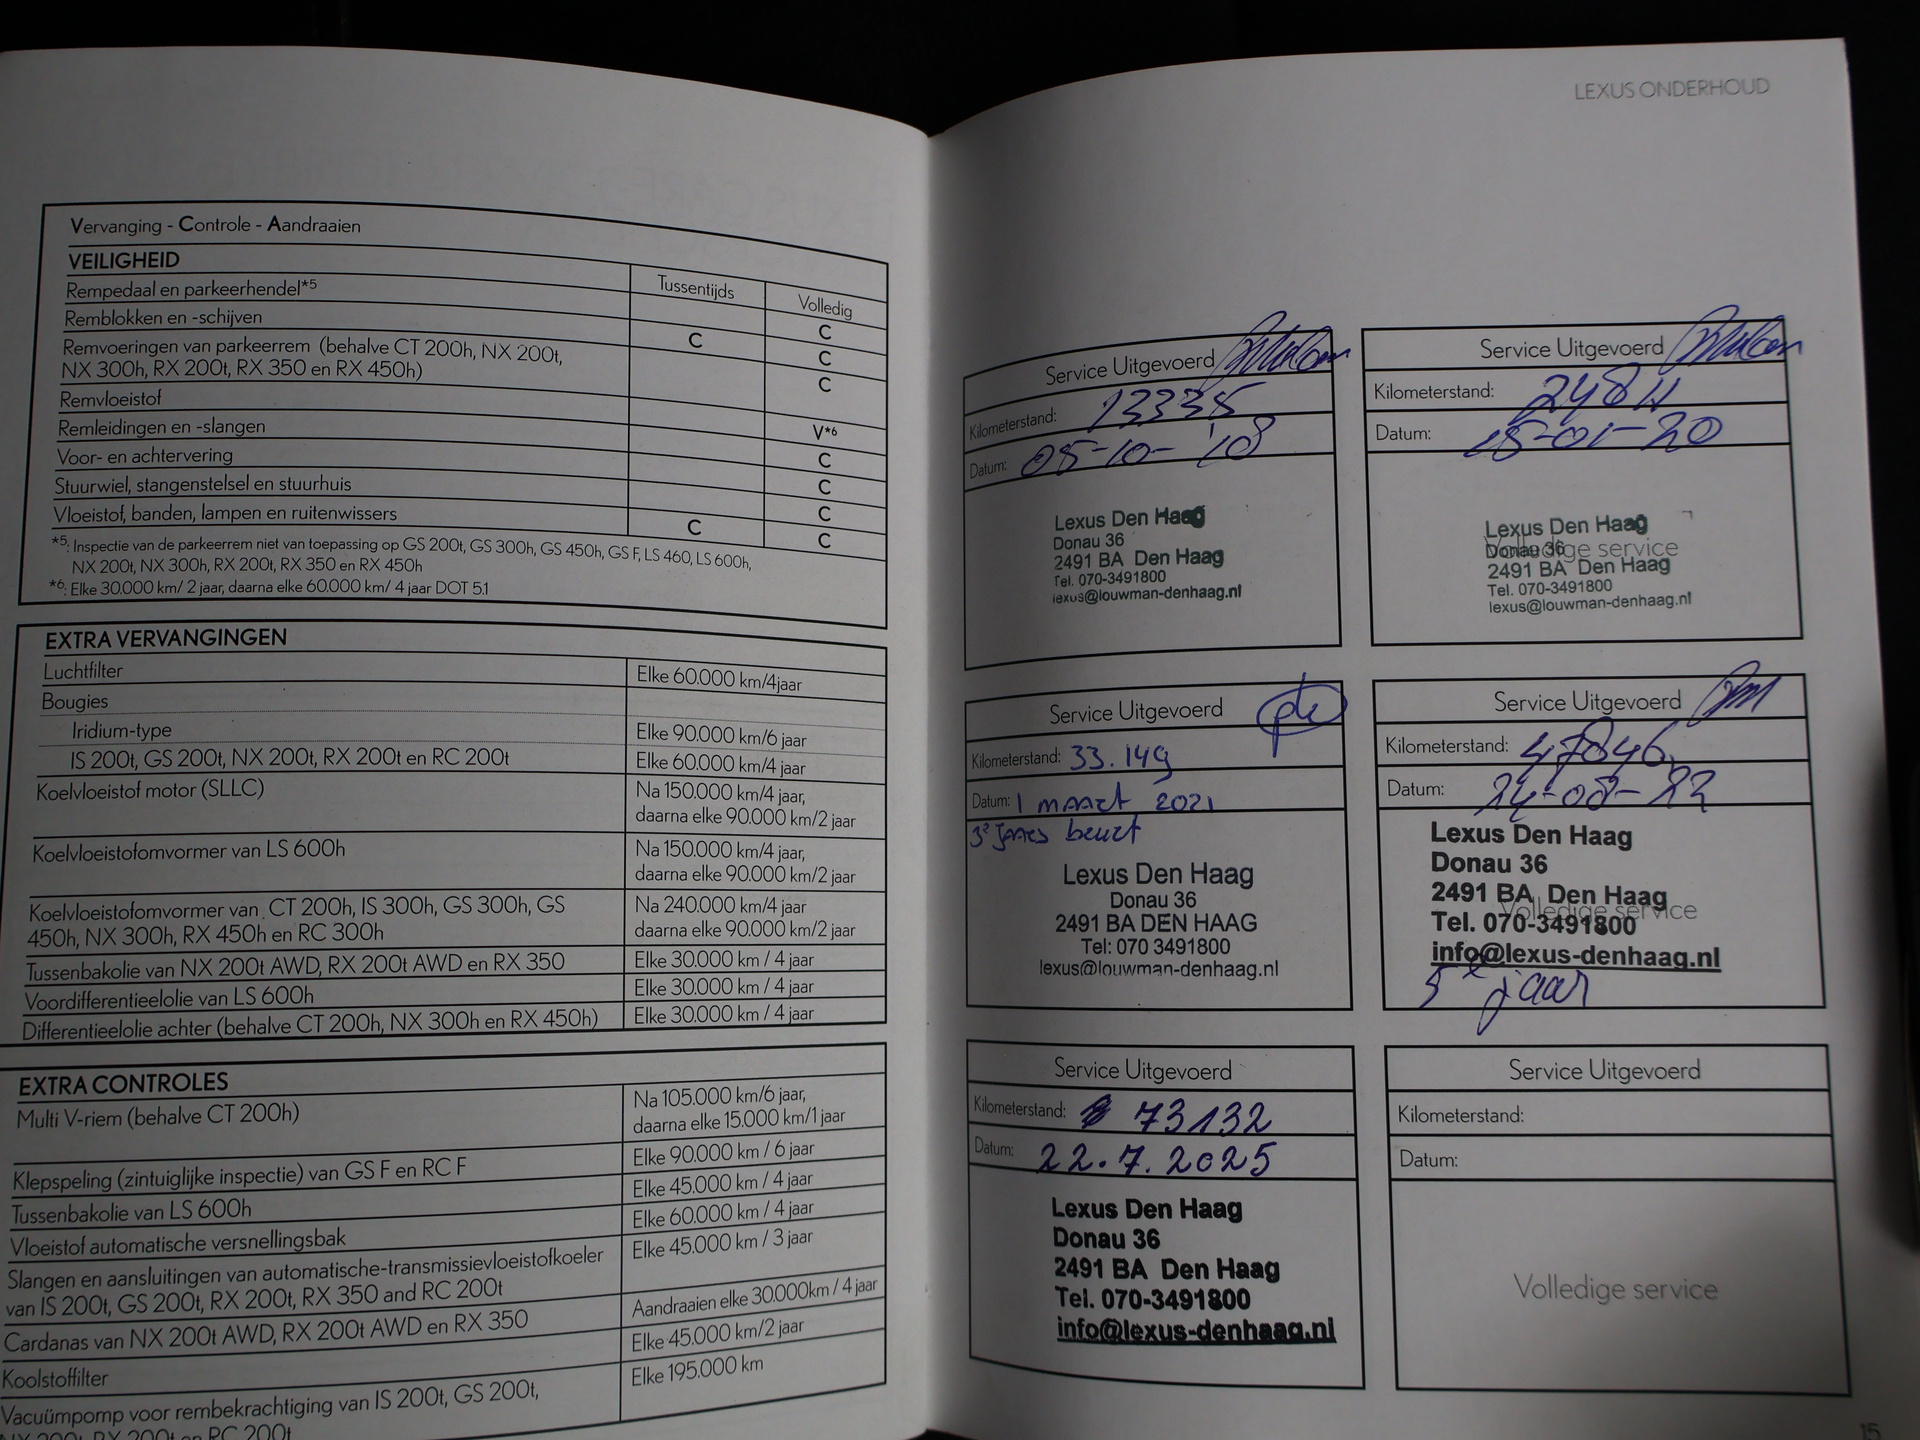 Vervanging - Controle - Aandraaien
VEILIGHEID
Tussentijds
Volledig
Rempedaal en parkeerhendel*5
C
Remblokken en -schijven
C
C
Remvoeringen van parkeerrem (behalve CT 200h, NX 200t,
NX 300h, RX 200t, RX 350 en RX 450h)
C
Remvloeistof
V*6
Remleidingen en -slangen
C
Voor- en achtervering
C
Stuurwiel, stangenstelsel en stuurhuis
C
Vloeistof, banden, lampen en ruitenwissers
C
C
*5: Inspectie van de parkeerrem niet van toepassing op GS 200t, GS 300h, GS 450h, GS F, LS 460, LS 600h,
NX 200t, NX 300h, RX 200t, RX 350 en RX 450h
*6: Elke 30.000 km/ 2 jaar, daarna elke 60.000 km/ 4 jaar DOT 5.1
EXTRA VERVANGINGEN
Luchtfilter
Elke 60.000 km/4jaar
Bougies
Iridium-type
Elke 90.000 km/6 jaar
IS 200t, GS 200t, NX 200t, RX 200t en RC 200t
Elke 60.000 km/4 jaar
Koelvloeistof motor (SLLC)
Na 150.000 km/4 jaar,
daarna elke 90.000 km/2 jaar
Koelvloeistofomvormer van LS 600h
Na 150.000 km/4 jaar,
daarna elke 90.000 km/2 jaar
Koelvloeistofomvormer van CT 200h, IS 300h, GS 300h, GS
450h, NX 300h, RX 450h en RC 300h
Na 240.000 km/4 jaar
daarna elke 90.000 km/2 jaar
Tussenbakolie van NX 200t AWD, RX 200t AWD en RX 350
Elke 30.000 km / 4 jaar
Voordifferentieelolie van LS 600h
Elke 30.000 km / 4 jaar
Differentieelolie achter (behalve CT 200h, NX 300h en RX 450h)
Elke 30.000 km / 4 jaar
EXTRA CONTROLES
Multi V-riem (behalve CT 200h)
Na 105.000 km/6 jaar,
daarna elke 15.000 km/1 jaar
Klepspeling (zintuiglijke inspectie) van GS F en RC F
Elke 90.000 km / 6 jaar
Tussenbakolie van LS 600h
Elke 45.000 km / 4 jaar
Vloeistof automatische versnellingsbak
Elke 60.000 km / 4 jaar
Slangen en aansluitingen van automatische-transmissievloeistofkoeler
van IS 200t, GS 200t, RX 200t, RX 350 and RC 200t
Elke 45.000 km / 3 jaar
Cardanas van NX 200t AWD, RX 200t AWD en RX 350
Aandraaien elke 30.000km / 4 jaar
Koolstoffilter
Elke 45.000 km/2 jaar
Vacuümpomp voor rembekrachtiging van IS 200t, GS 200t,
NX 200t, RX 200t en RC 200t
Elke 195.000 km
LEXUS ONDERHOUD
Service Uitgevoerd
Kilometerstand: 13335
Datum: 05-10-'18
Lexus Den Haag
Donau 36
2491 BA Den Haag
Tel. 070-3491800
lexus@louwman-denhaag.nl
Service Uitgevoerd
Kilometerstand: 24811
Datum: 15-01-20
Volledige service
Lexus Den Haag
Donau 36
2491 BA Den Haag
Tel. 070-3491800
lexus@louwman-denhaag.nl
Service Uitgevoerd
Kilometerstand: 33.149
Datum: 1 maart 2021
3e jaars beurt
Lexus Den Haag
Donau 36
2491 BA DEN HAAG
Tel: 070 3491800
lexus@louwman-denhaag.nl
Service Uitgevoerd
Kilometerstand: 47846
Datum: 24-08-22
Lexus Den Haag
Donau 36
2491 BA Den Haag
Volledige service
Tel. 070-3491800
info@lexus-denhaag.nl
5e jaar
Service Uitgevoerd
Kilometerstand: 73132
Datum: 22.7.2025
Lexus Den Haag
Donau 36
2491 BA Den Haag
Tel. 070-3491800
info@lexus-denhaag.nl
Service Uitgevoerd
Kilometerstand:
Datum:
Volledige service
15